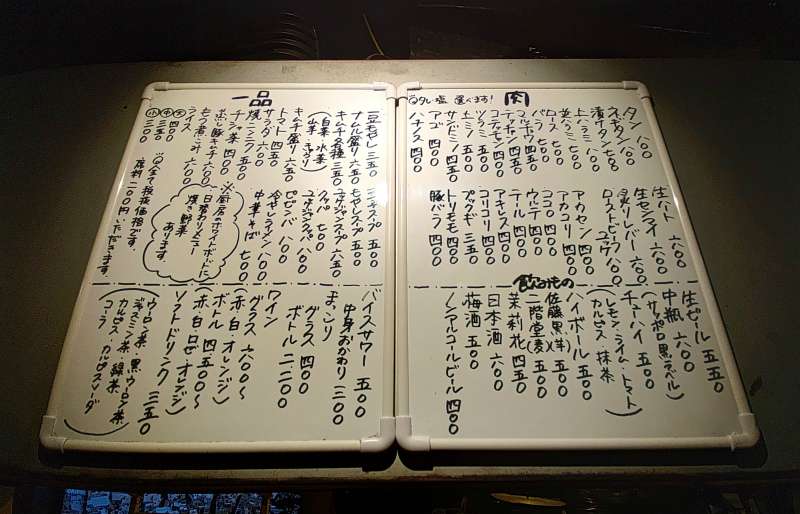 肉
タレ・塩 選べます!
タン 八〇〇
ネギタン 八〇〇
漬けタン 七〇〇
上ハラミ 八〇〇
並ハラミ 八〇〇
ロース 七〇〇
バラ 七〇〇
マルチョウ 四五〇
テッチャン 四五〇
コプチャン 四〇〇
ツラミ 五〇〇
上ミノ 五五〇
サンドミノ 四五〇
アゴ 四〇〇
ハツアシ 四〇〇
生ハート 六〇〇
生センマイ 六〇〇
炙りレバー 六〇〇
ローストビーフユッケ 八〇〇
アカセン 四〇〇
アカコリ 四〇〇
ココロ 四〇〇
ウルテ 四〇〇
テール 四〇〇
アキレス 四〇〇
コリコリ 四〇〇
プップギ 三五〇
トリモモ 四〇〇
豚バラ 四〇〇
飲みもの
生ビール 五五〇
中瓶 六〇〇
(サッポロ黒ラベル)
チューハイ 五〇〇
(レモン・ライム・トマト
カルピス・抹茶)
ハイボール 五〇〇
佐藤黒(芋)
二階堂(麦) 五〇〇
茉莉花 四五〇
日本酒 六〇〇
梅酒 五〇〇
ノンアルコールビール 四〇〇
一品
豆もやし 三五〇
ナムル盛り 六五〇
キムチ各種 三五〇
(白菜 水菜
山芋 きゅうり)
キムチ盛り 六五〇
トマト 四五〇
サラダ 六〇〇
焼ニンニク 五〇〇
チシャ菜 四〇〇
蒸し豚キムチ 七〇〇
モツ煮こみ 六〇〇
ライス
大 四〇〇
中 三五〇
小 三〇〇
ミニスープ 五〇〇
もやしスープ 五〇〇
ユッケジャンスープ 六五〇
クッパ 七〇〇
ユッケジャンクッパ 八〇〇
ビビンバ 八〇〇
冷やしラーメン 八〇〇
中華そば 七〇〇
※厨房のホワイトボードに
日替わりメニュー
焼き野菜
あります。
この全て税抜価格です。
席料二〇〇円いただきます。
バイスサワー 五〇〇
中身おかわり 三〇〇
まっこり
グラス 四〇〇
ボトル 二二〇〇
ワイン
グラス 六〇〇〜
(赤 白 オレンジ)
ボトル 四五〇〇〜
(赤 白 ロゼ オレンジ)
ソフトドリンク 三五〇
(ウーロン茶・黒ウーロン茶
ジャスミン茶・緑茶
カルピス・カルピスソーダ
コーラ)